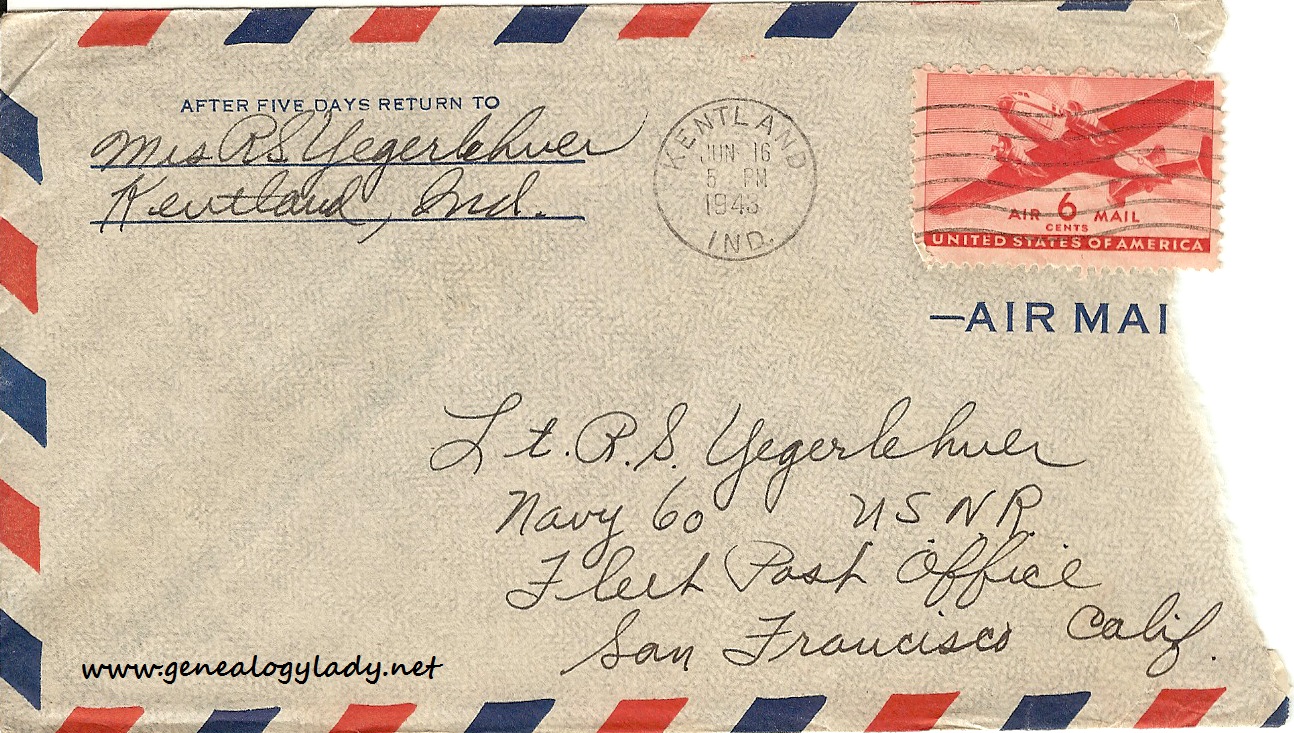 AFTER FIVE DAYS RETURN TO
Mrs R S Yegerlehner
Kentland, Ind.
KENTLAND
JUN 16
5 PM
1943
IND.
AIR 6 MAIL
CENTS
UNITED STATES OF AMERICA
—AIR MAI
Lt. R. S. Yegerlehner
Navy 60 U.S.N.R.
Fleet Post Office
San Francisco Calif.
www.genealogylady.net